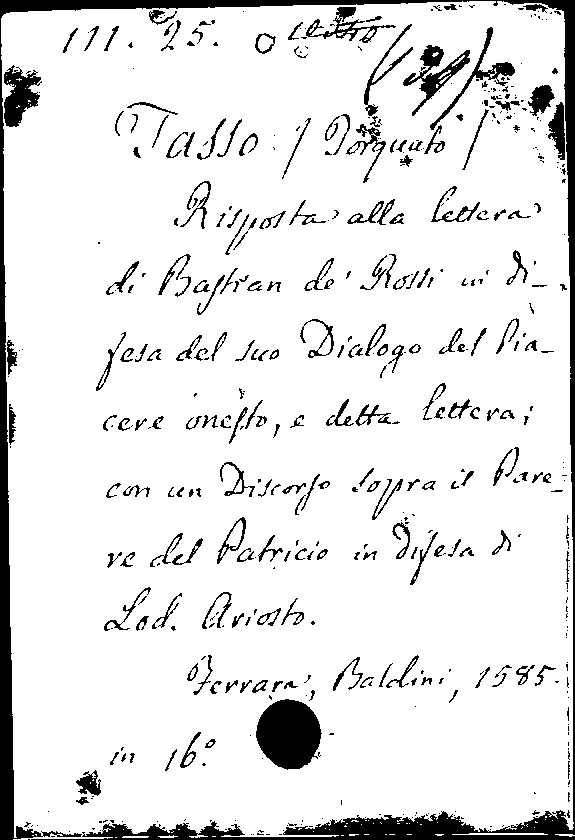 111. 25.
Tasso / Torquato /
Risposta alla lettera
di Bastian de' Rossi in di-
fesa del suo Dialogo del Pia-
cere onesto, e detta lettera;
con un Discorso sopra il Pare-
re del Patricio in difesa di
Lod. Ariosto.
Ferrara, Baldini, 1585.
in 16º